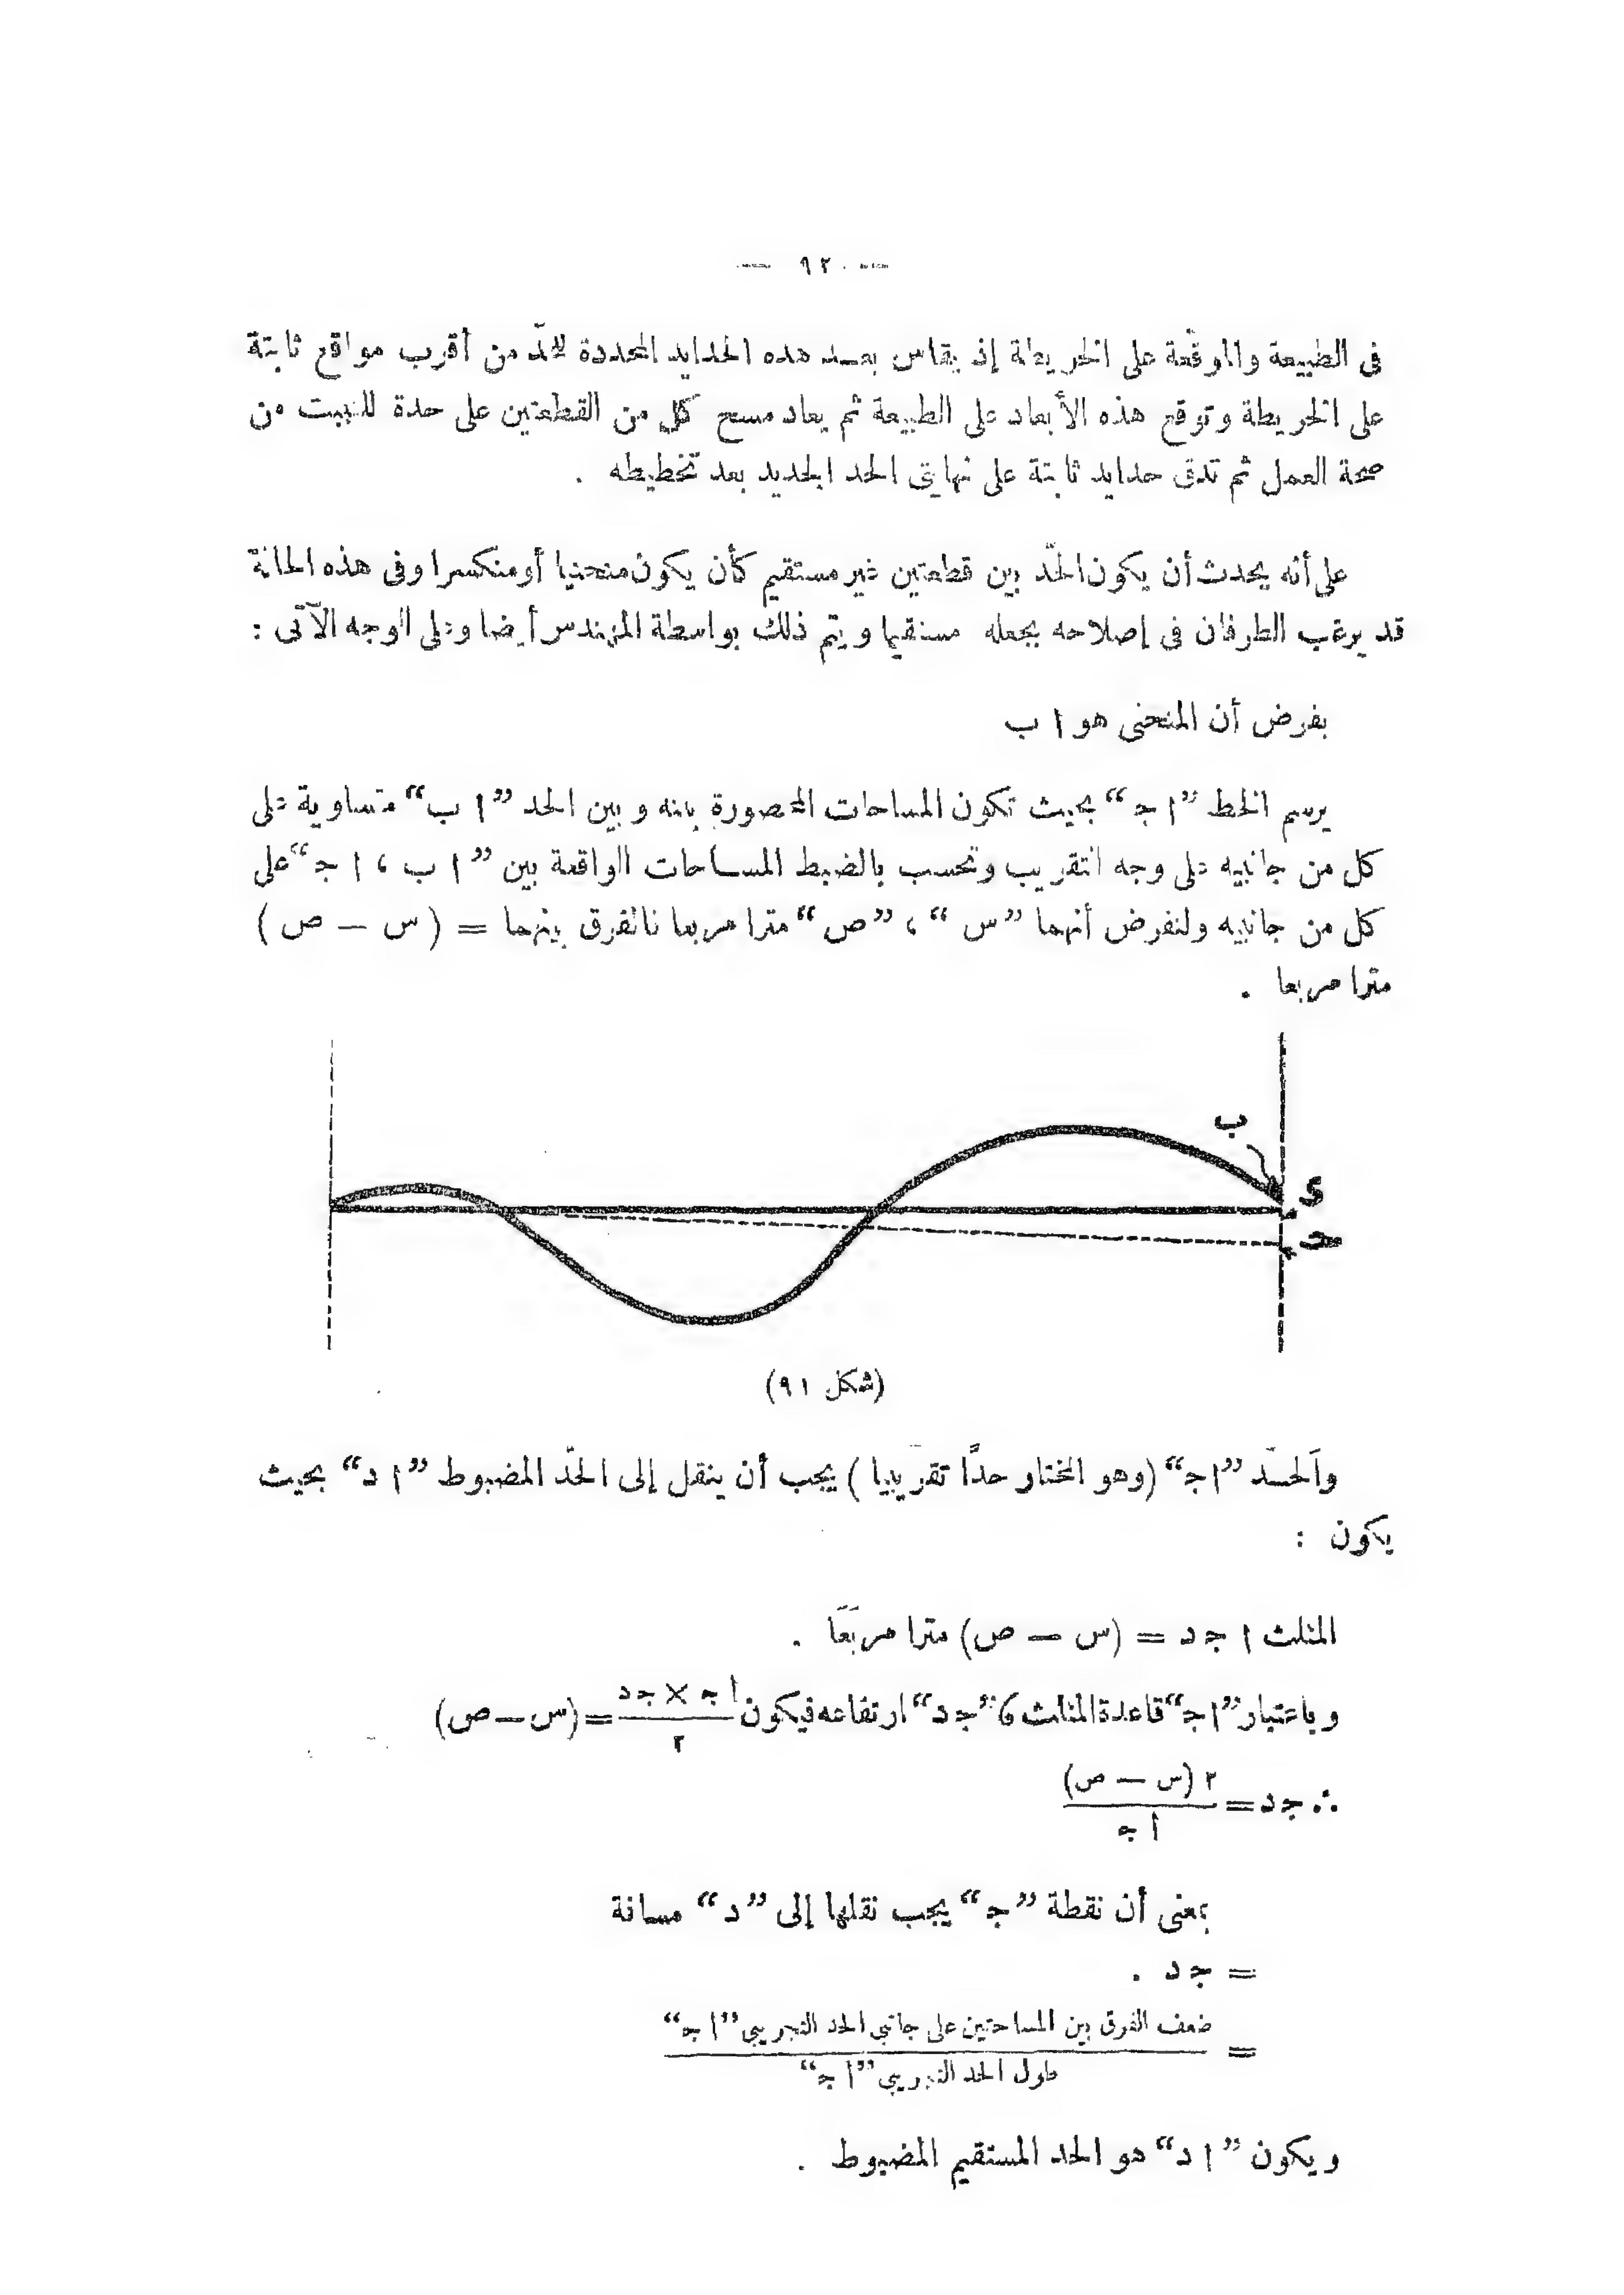 — ٩٢ —
فى الطبيعة والموقعة على الخريطة إذ يقاس بعد هذه الحدايد المحددة للحدّ من أقرب مواقع ثابتة
على الخريطة وتوقع هذه الأبعاد على الطبيعة ثم يعاد مسح كل من القطعتين على حدة للتثبت من
صحة العمل ثم تدق حدايد ثابتة على نهايتى الحد الجديد بعد تخطيطه .
على أنه يحدث أن يكون الحدّ بين قطعتين غير مستقيم كأن يكون منحنيا أو منكسرا وفى هذه الحالة
قد يرغب الطرفان فى إصلاحه بجعله مستقيما ويتم ذلك بواسطة المهندس أيضا وعلى الوجه الآتى :
بفرض أن المنحنى هو ا ب
يرسم الخط ”ا جـ“ بحيث تكون المساحات المحصورة بينه وبين الحد ”ا ب“ متساوية على
كل من جانبيه على وجه التقريب وتحسب بالضبط المساحات الواقعة بين ”ا ب ، ا جـ“ على
كل من جانبيه ولنفرض أنهما ”س“ ، ”ص“ مترا مربعا فالفرق بينهما = ( س — ص )
مترا مربعا .
ب
د
جـ
(شكل ٩١)
والحدّ ”ا جـ“ (وهو المختار حدًّا تقريبيا ) يجب أن ينقل إلى الحدّ المضبوط ”ا د“ بحيث
يكون :
المثلث ا جـ د = (س — ص) مترا مربعًا .
وباعتبار ”ا جـ“ قاعدة المثلث ، ”جـ د“ ارتفاعه فيكون أ جـ × جـ د / ٢ = (س — ص)
∴ جـ د = ٢ (س — ص) / أ جـ
بمعنى أن نقطة ”جـ“ يجب نقلها إلى ”د“ مسافة
= جـ د .
= ضعف الفرق بين المساحتين على جانبى الحد التجريبى ”ا جـ“
طول الحد التجريبى ”ا جـ“
ويكون ”ا د“ هو الحد المستقيم المضبوط .